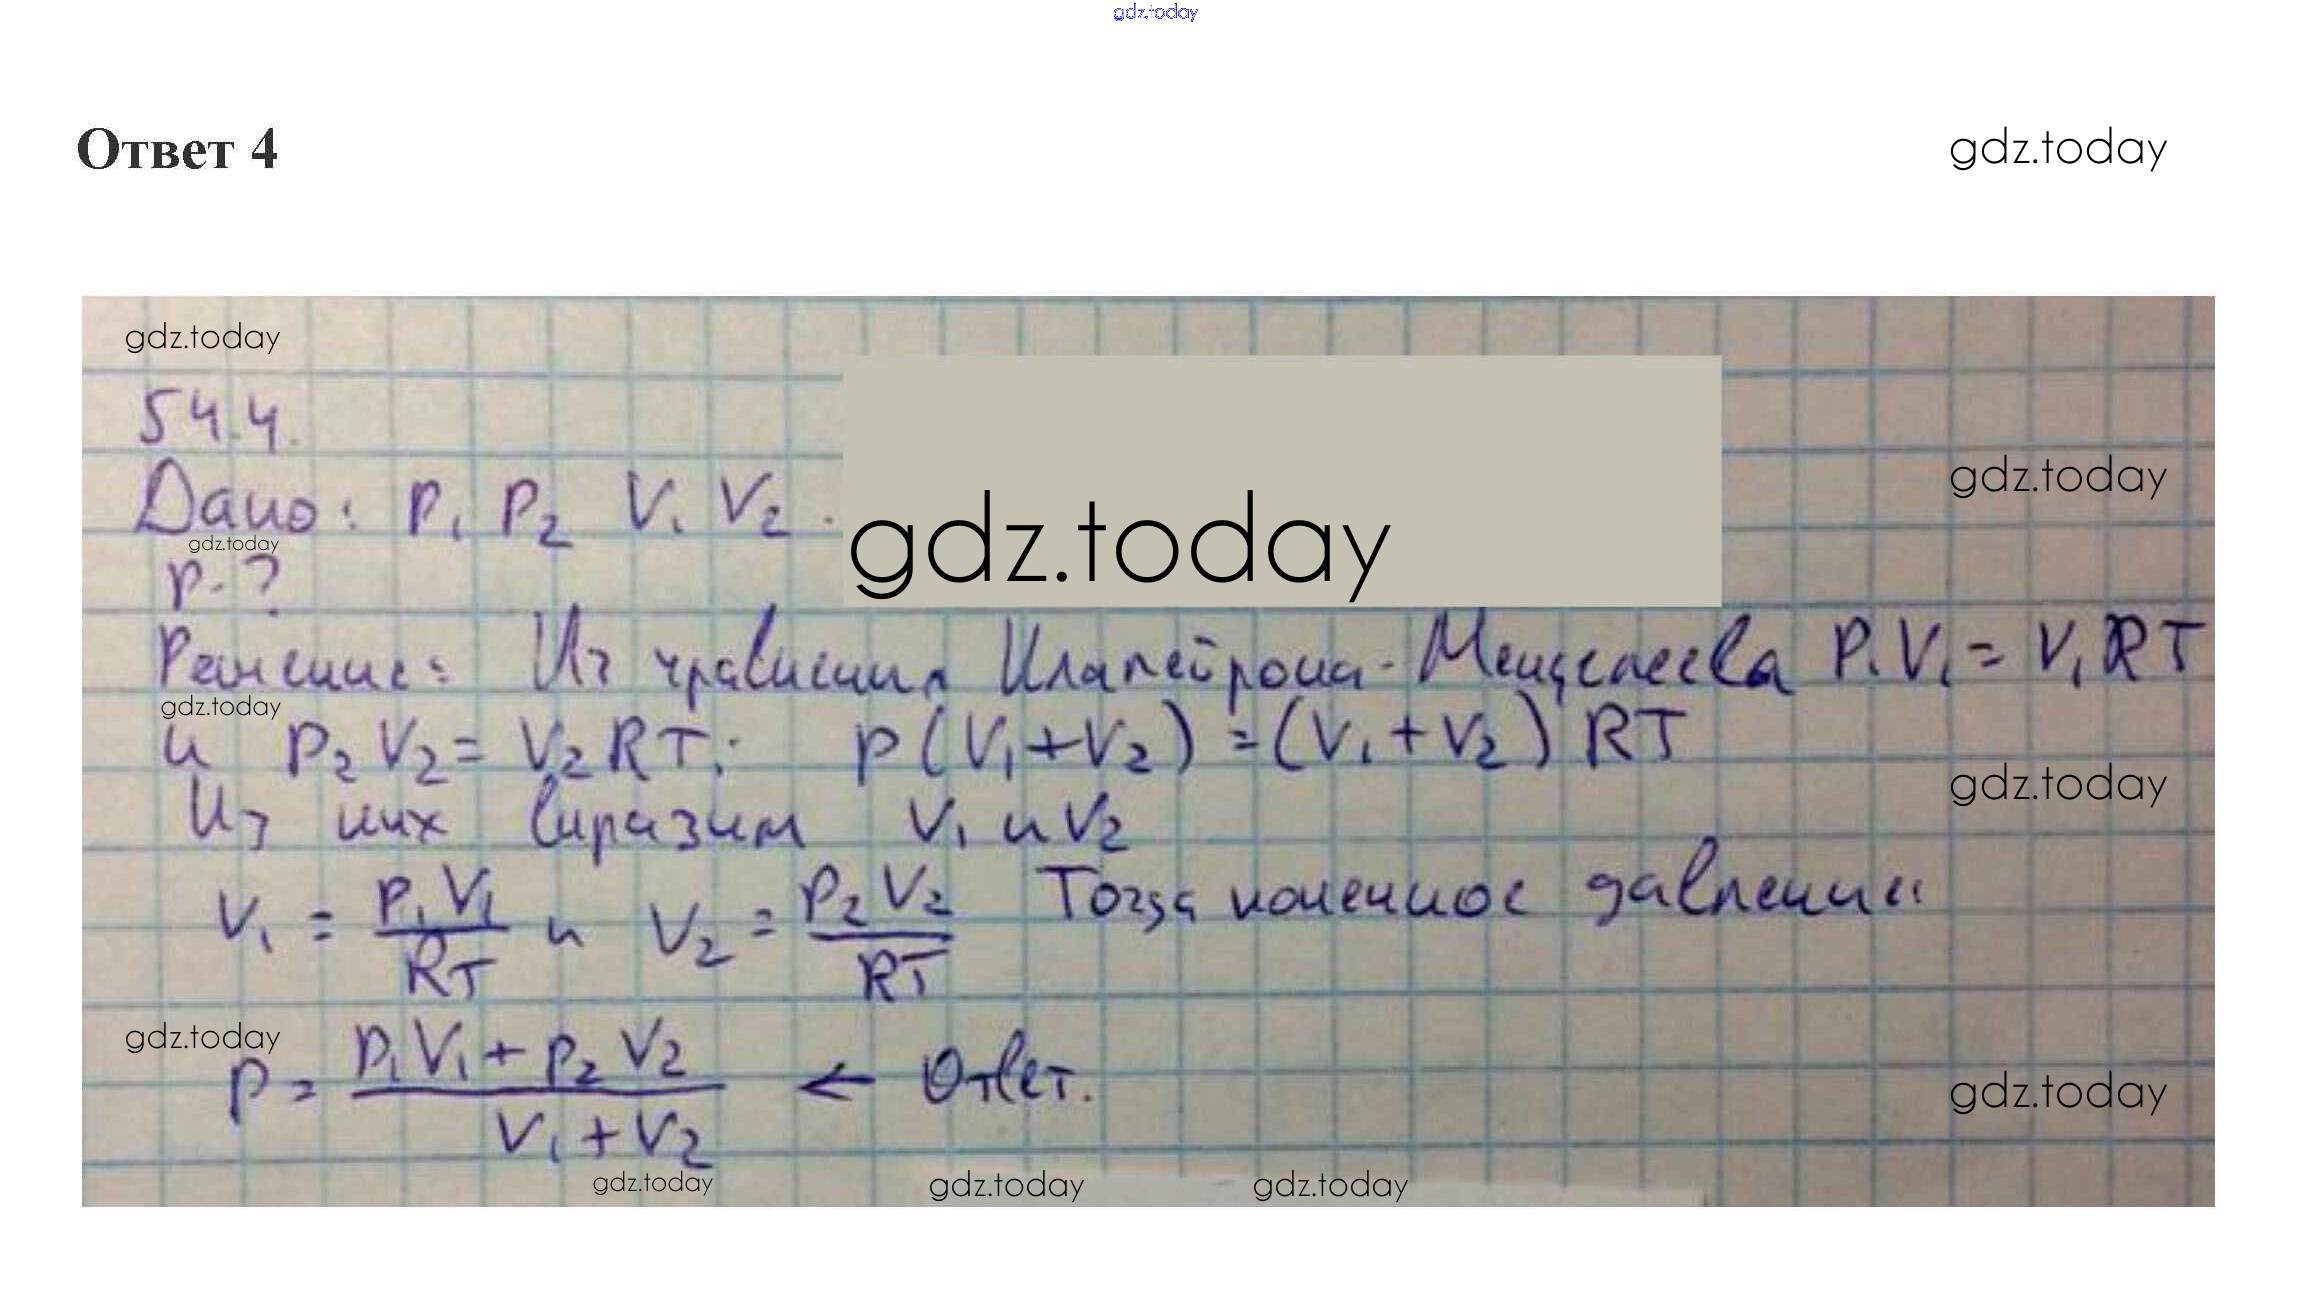 gdz.today
Ответ 4
gdz.today
gdz.today
54.4.
gdz.today
Дано: p₁ p₂ V₁ V₂.
gdz.today
gdz.today
p-?
Решение: Из уравнения Клапейрона-Менделеева P₁V₁ = ν₁RT
gdz.today
и P₂V₂ = ν₂RT; p(V₁+V₂) = (ν₁+ν₂)RT
gdz.today
Из них выразим ν₁ и ν₂
ν₁ = p₁V₁/RT и ν₂ = p₂V₂/RT Тогда конечное давление:
gdz.today
p = (p₁V₁ + p₂V₂)/(V₁ + V₂) ← Ответ.
gdz.today
gdz.today gdz.today gdz.today